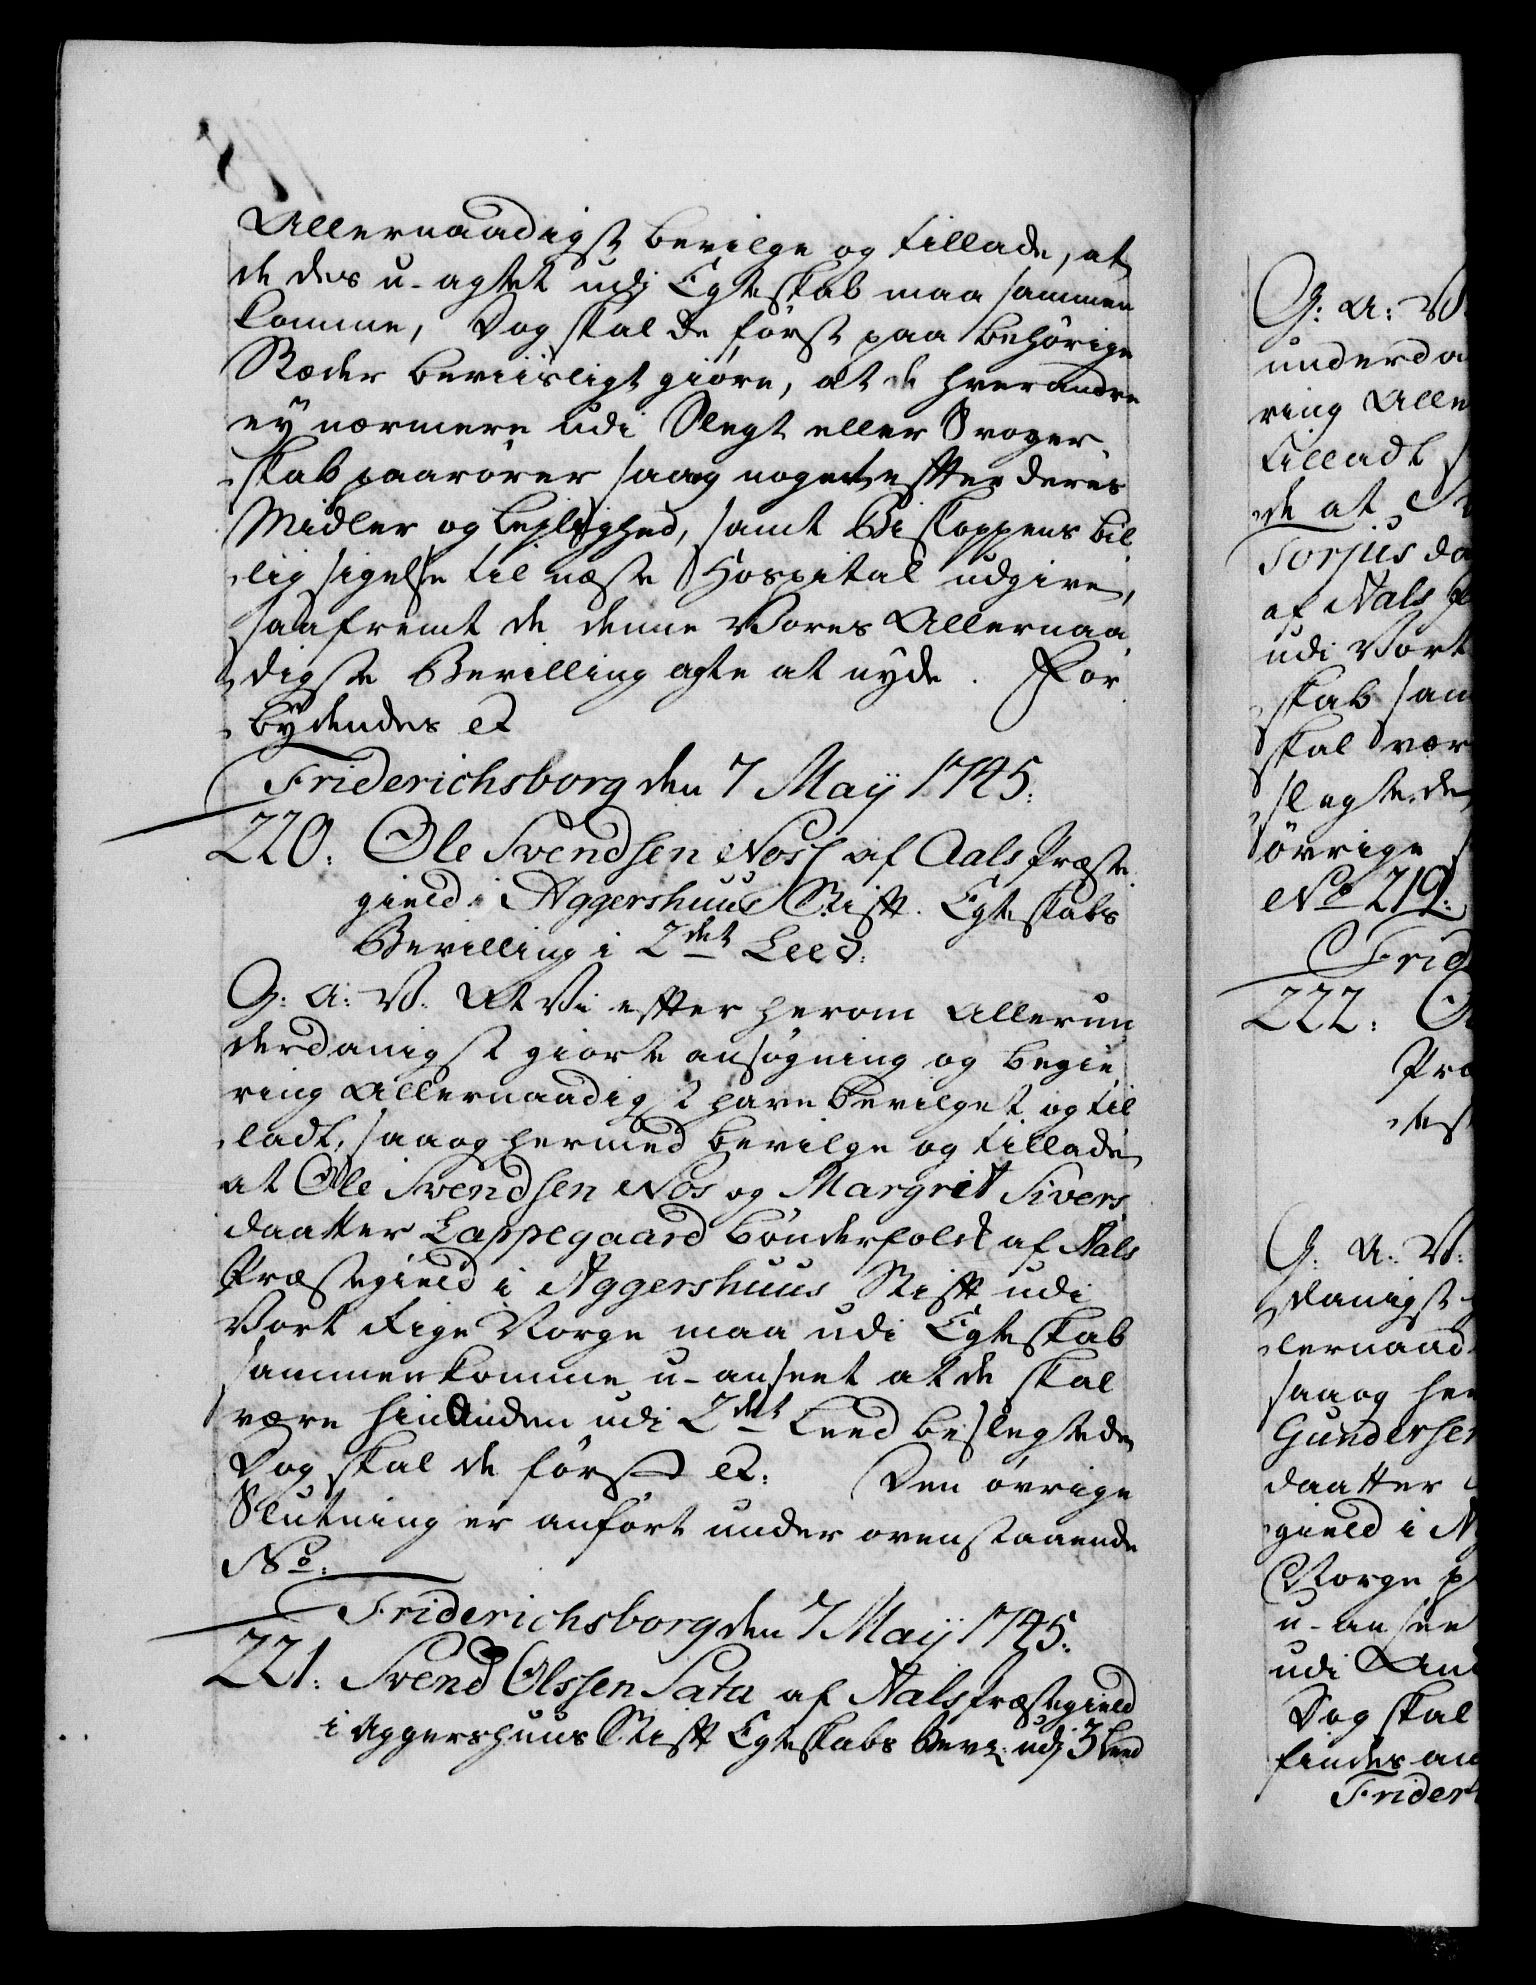 Allernaadigst bevilge og tillade, at
de des u-agtet udj Egteskab maa sammen
komme, Dog skal de først paa behörige
Stæder beviisligt giøre, at de hverandre
ey nærmere udi Slegt eller Svoger
skab paarörer saa og noget effter deres
Midler og lejlighed, samt Biskoppens bil
lig sigelse til næste Hospital udgive,
saafremt de denne Vores Allernaa
digste Bevilling agte at nyde. For
bydendes &
Friderichsborg den 7 Maij 1745:
220: Ole Svendsen Nos af Aals Præste
gield i Aggershuus Stift. Egteskabs
Bevilling i 2det Leed:
G: A: V. At Vi effter herom Allerun
derdanigst giorte ansøgning og begie
ring Allernaadigst have bevilget og til
ladt, saa og hermed bevilge og tillade
at Ole Svendsen Nos og Margrit Sivers
daatter Lappegaard bönderfolk af Aals
Præstegield i Aggershuus Stift udi
Vort Rige Norge maa udi Egteskab
sammenkomme u-anseet at de skal
være hinanden udi 2det Leed beslegtede
Dog skal de först &: Den övrige
Slutning er anfört under ovenstaaende
No:
Friderichsborg den 7 Maij 1745:
221: Svend Olssen Sata af Aals Præstegield
i Aggershuus Stift Egteskabs Bev: udj 3 Leed
G: A: V
underda
ring Alle
tilladt
de at
Torjus da
af Aals
udi Vort
skab sam
skal vær
slegtede
övrige
No 219:
Frid
222:
Præ
G: A: V:
danigst
lernaad
saa og her
Gundersen
daatter
gield i
Norge
u-anseet
udi And
Dog skal
findes an
Frider